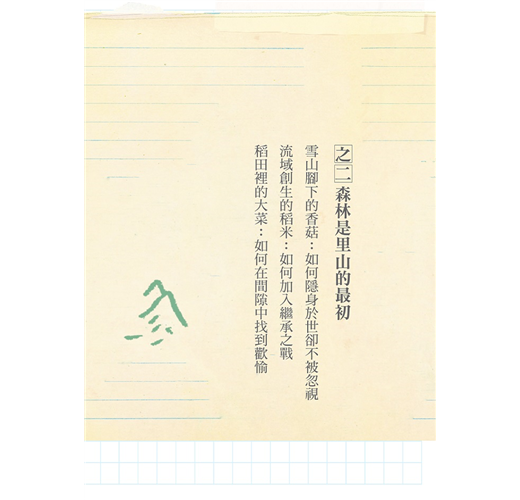 之二 森林是里山的最初
雪山腳下的香菇：如何隱身於世卻不被忽視
流域創生的稻米：如何加入繼承之戰
稻田裡的大菜：如何在間隙中找到歡愉